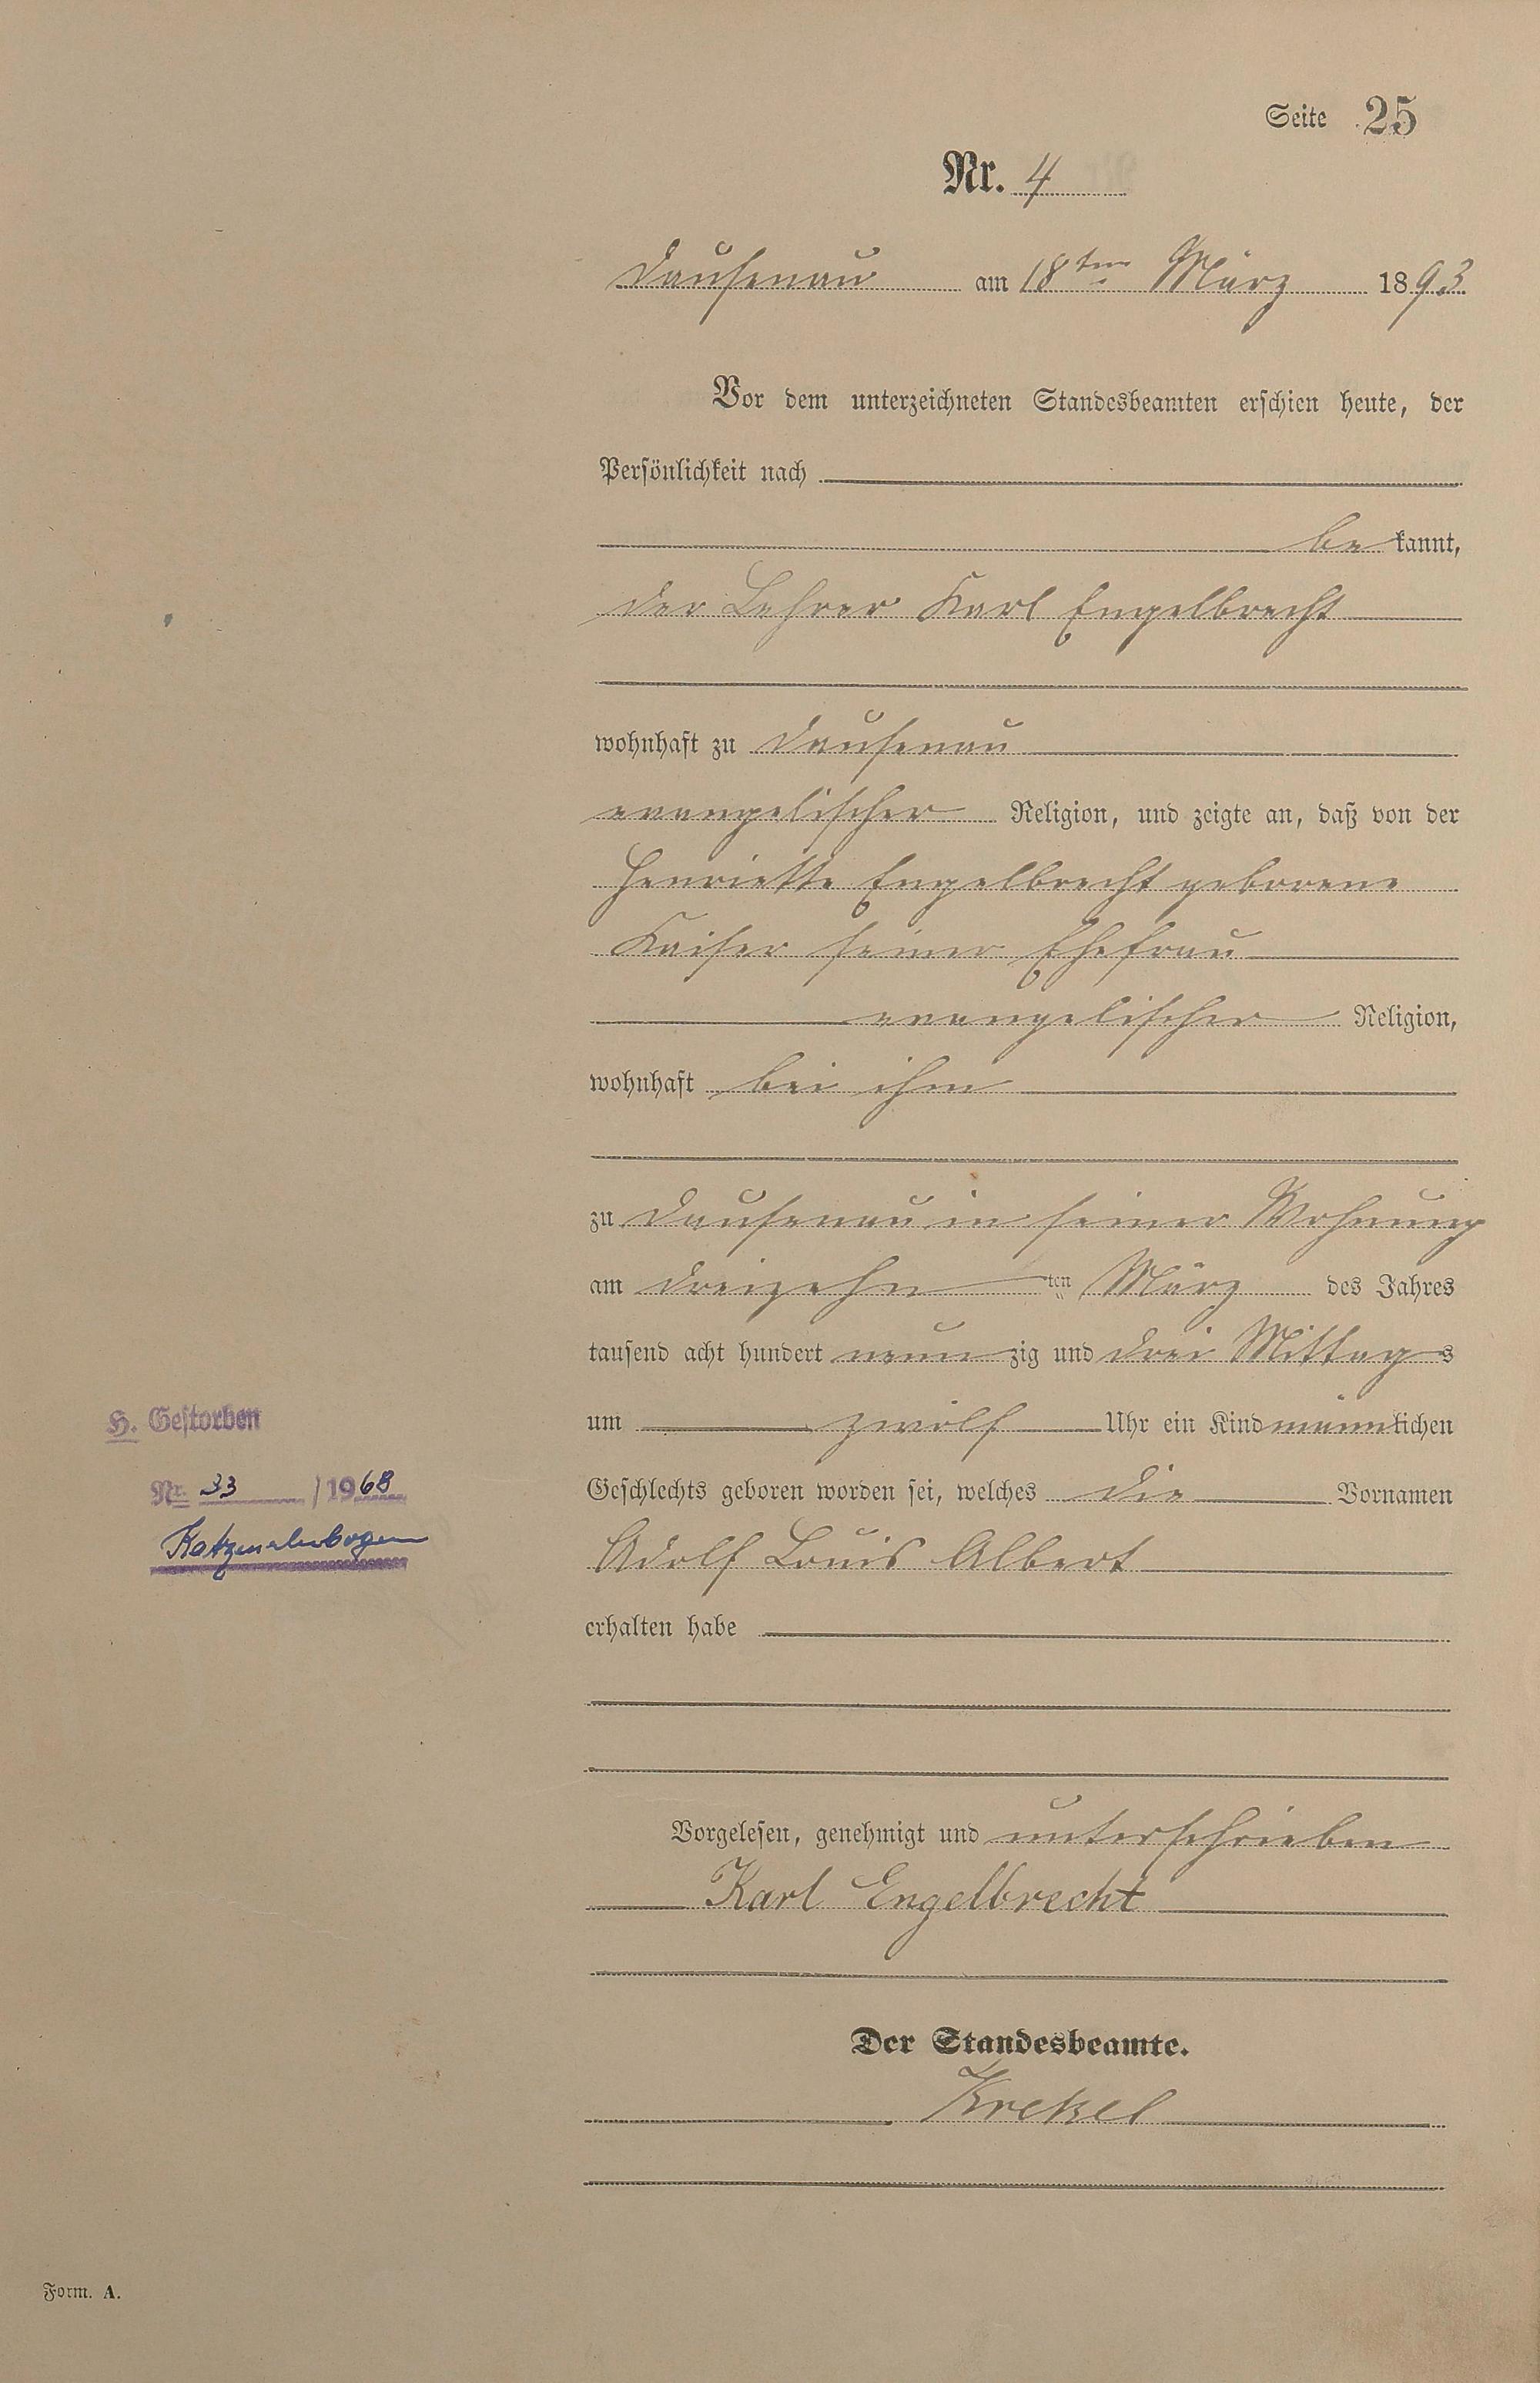 Seite 25
Nr. 4
Dausenau am 18ten März 1893
Vor dem unterzeichneten Standesbeamten erschien heute, der
Persönlichkeit nach
be kannt,
der Lehrer Karl Engelbrecht
wohnhaft zu Dausenau
evangelischer Religion, und zeigte an, daß von der
Henriette Engelbrecht geborene
Kaiser seiner Ehefrau
evangelischer Religion,
wohnhaft bei ihm
zu Dausenau in seiner Wohnung
am dreizehn ten März des Jahres
tausend acht hundert neun zig und drei Mittags
um zwölf Uhr ein Kind männlichen
Geschlechts geboren worden sei, welches die Vornamen
Adolf Louis Albert
erhalten habe
Vorgelesen, genehmigt und unterschrieben
Karl Engelbrecht
Der Standesbeamte.
Krekel
H. Gestorben
Nr. 33 /1968
Katzenelnbogen
Form. A.